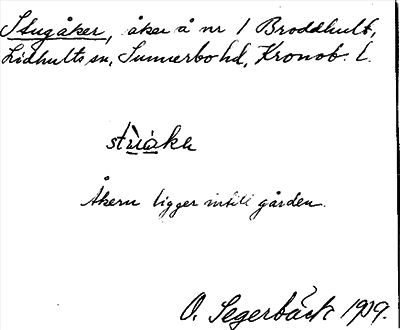 Stugåker, åker å nr 1 Broddhult,
Lidhults sn, Sunnerbo hd, Kronob. l.
Åkern ligger intill gården.
O. Segerbäck 1919.